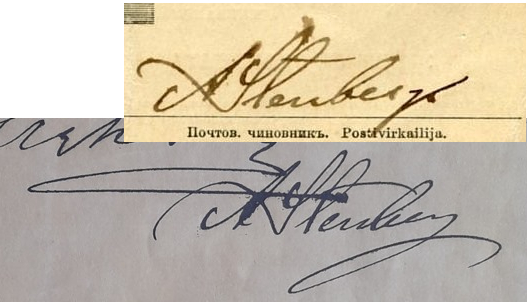 A Stenberg
Почтов. чиновникъ. Postivirkailija.
A Stenberg